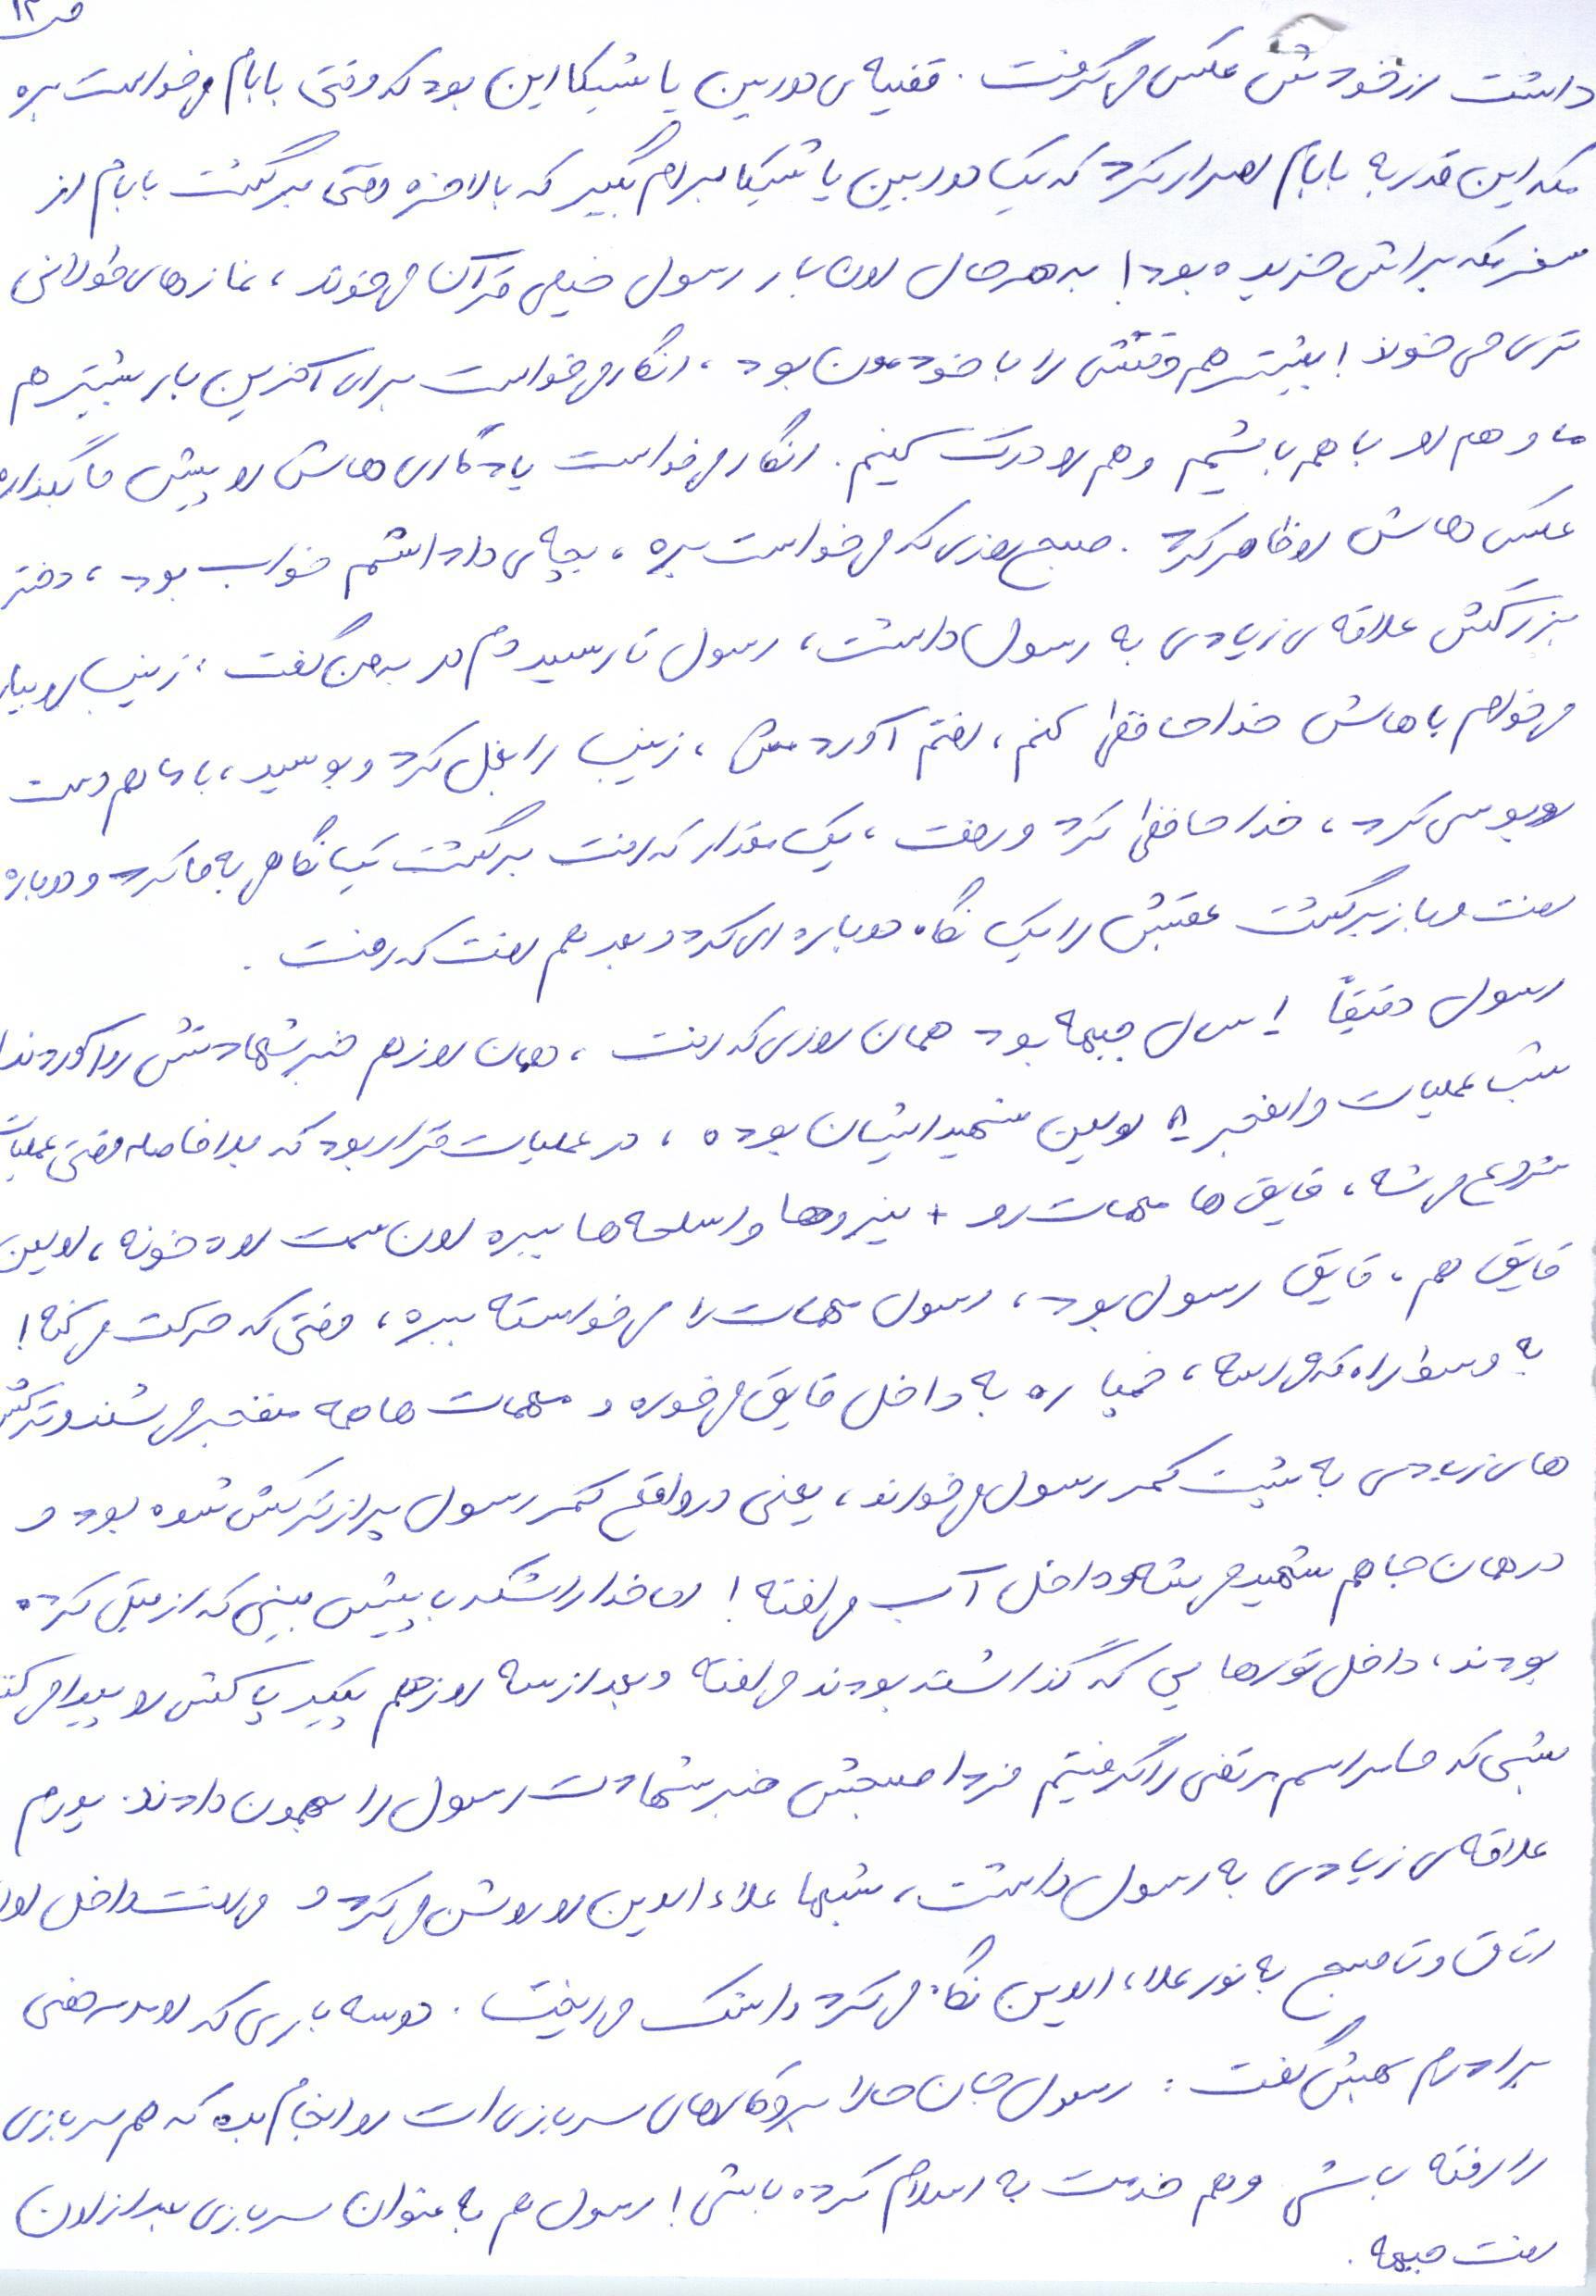 ص ۱۲
داشت از خودش عکس می گرفت. قضیه ی دوربین یاشیکا این بود که وقتی بابام می خواست بره
مکه این قدر به بابام اصرار کرد که یک دوربین یاشیکا برام بگیر که بالاخره وقتی برگشت بابام از
سفر مکه براش خریده بود! به هر حال اون بار رسول خیلی قرآن می خوند، نمازهای طولانی
تری می خوند! بیشتر هم وقتش را با خودمون بود، انگار می خواست برای آخرین بار بیشتر هم
ما و هم او با هم باشیم و هم رو درک کنیم. انگار می خواست یادگاری هاش رو پیش ما بگذاره
عکس هاش رو ظاهر کرد. صبح روزی که می خواست بره، بچه ی داداشم خواب بود، دختر
بزرگش علاقه ی زیادی به رسول داشت، رسول تا رسید دم در به من گفت، زینب رو بیار
می خواهم باهاش خداحافظی کنم، رفتم آوردمش، زینب را بغل کرد و بوسید، با ما هم دست
روبوسی کرد، خداحافظی کرد و رفت، یک مقدار که رفت برگشت یک نگاهی به ما کرد و دوباره
رفت و باز برگشت عقبش را یک نگاه دوباره ای کرد و بعد هم رفت که رفت.
رسول دقیقاً ۱ سال جبهه بود همان روزی که رفت، همان روز هم خبر شهادتش رو آوردند!
شب عملیات والفجر ۸ اولین شهید ایشان بوده، در عملیات قرار بود که بلافاصله وقتی عملیات
شروع می شه، قایق ها مهمات رو + نیروها و اسلحه ها ببره اون سمت رودخونه، اولین
قایق هم، قایق رسول بود، رسول مهمات را می خواسته ببره، وقتی که حرکت می کنه!
به وسط راه که می رسه، خمپاره به داخل قایق می خوره و مهمات ها همه منفجر می شند و ترکش
های زیادی به پشت کمر رسول می خورند، یعنی در واقع کمر رسول پر از ترکش شده بود و
در همان جا هم شهید می شه و داخل آب می افته! اما خدا را شکر با پیش بینی که از قبل کرده
بودند، داخل تورهایی که گذاشته بودند می افته و بعد از سه روز هم پیکر پاکش رو پیدا می کنند
شبی که ما مراسم مرتضی را گرفتیم فردا صبحش خبر شهادت رسول را بهمون دادند. پدرم
علاقه ی زیادی به رسول داشت، شبها علاءالدین رو روشن می کرد و می رفت داخل اون
اتاق و تا صبح به نور علاءالدین نگاه می کرد و اشک می ریخت. دو سه باری که اومد مرخصی
برادرم بهش گفت: رسول جان حالا برو کارهای سربازی ات رو انجام بده که هم سربازی
را رفته باشی و هم خدمت به اسلام کرده باشی! رسول هم به عنوان سربازی بعد از اون
رفت جبهه.